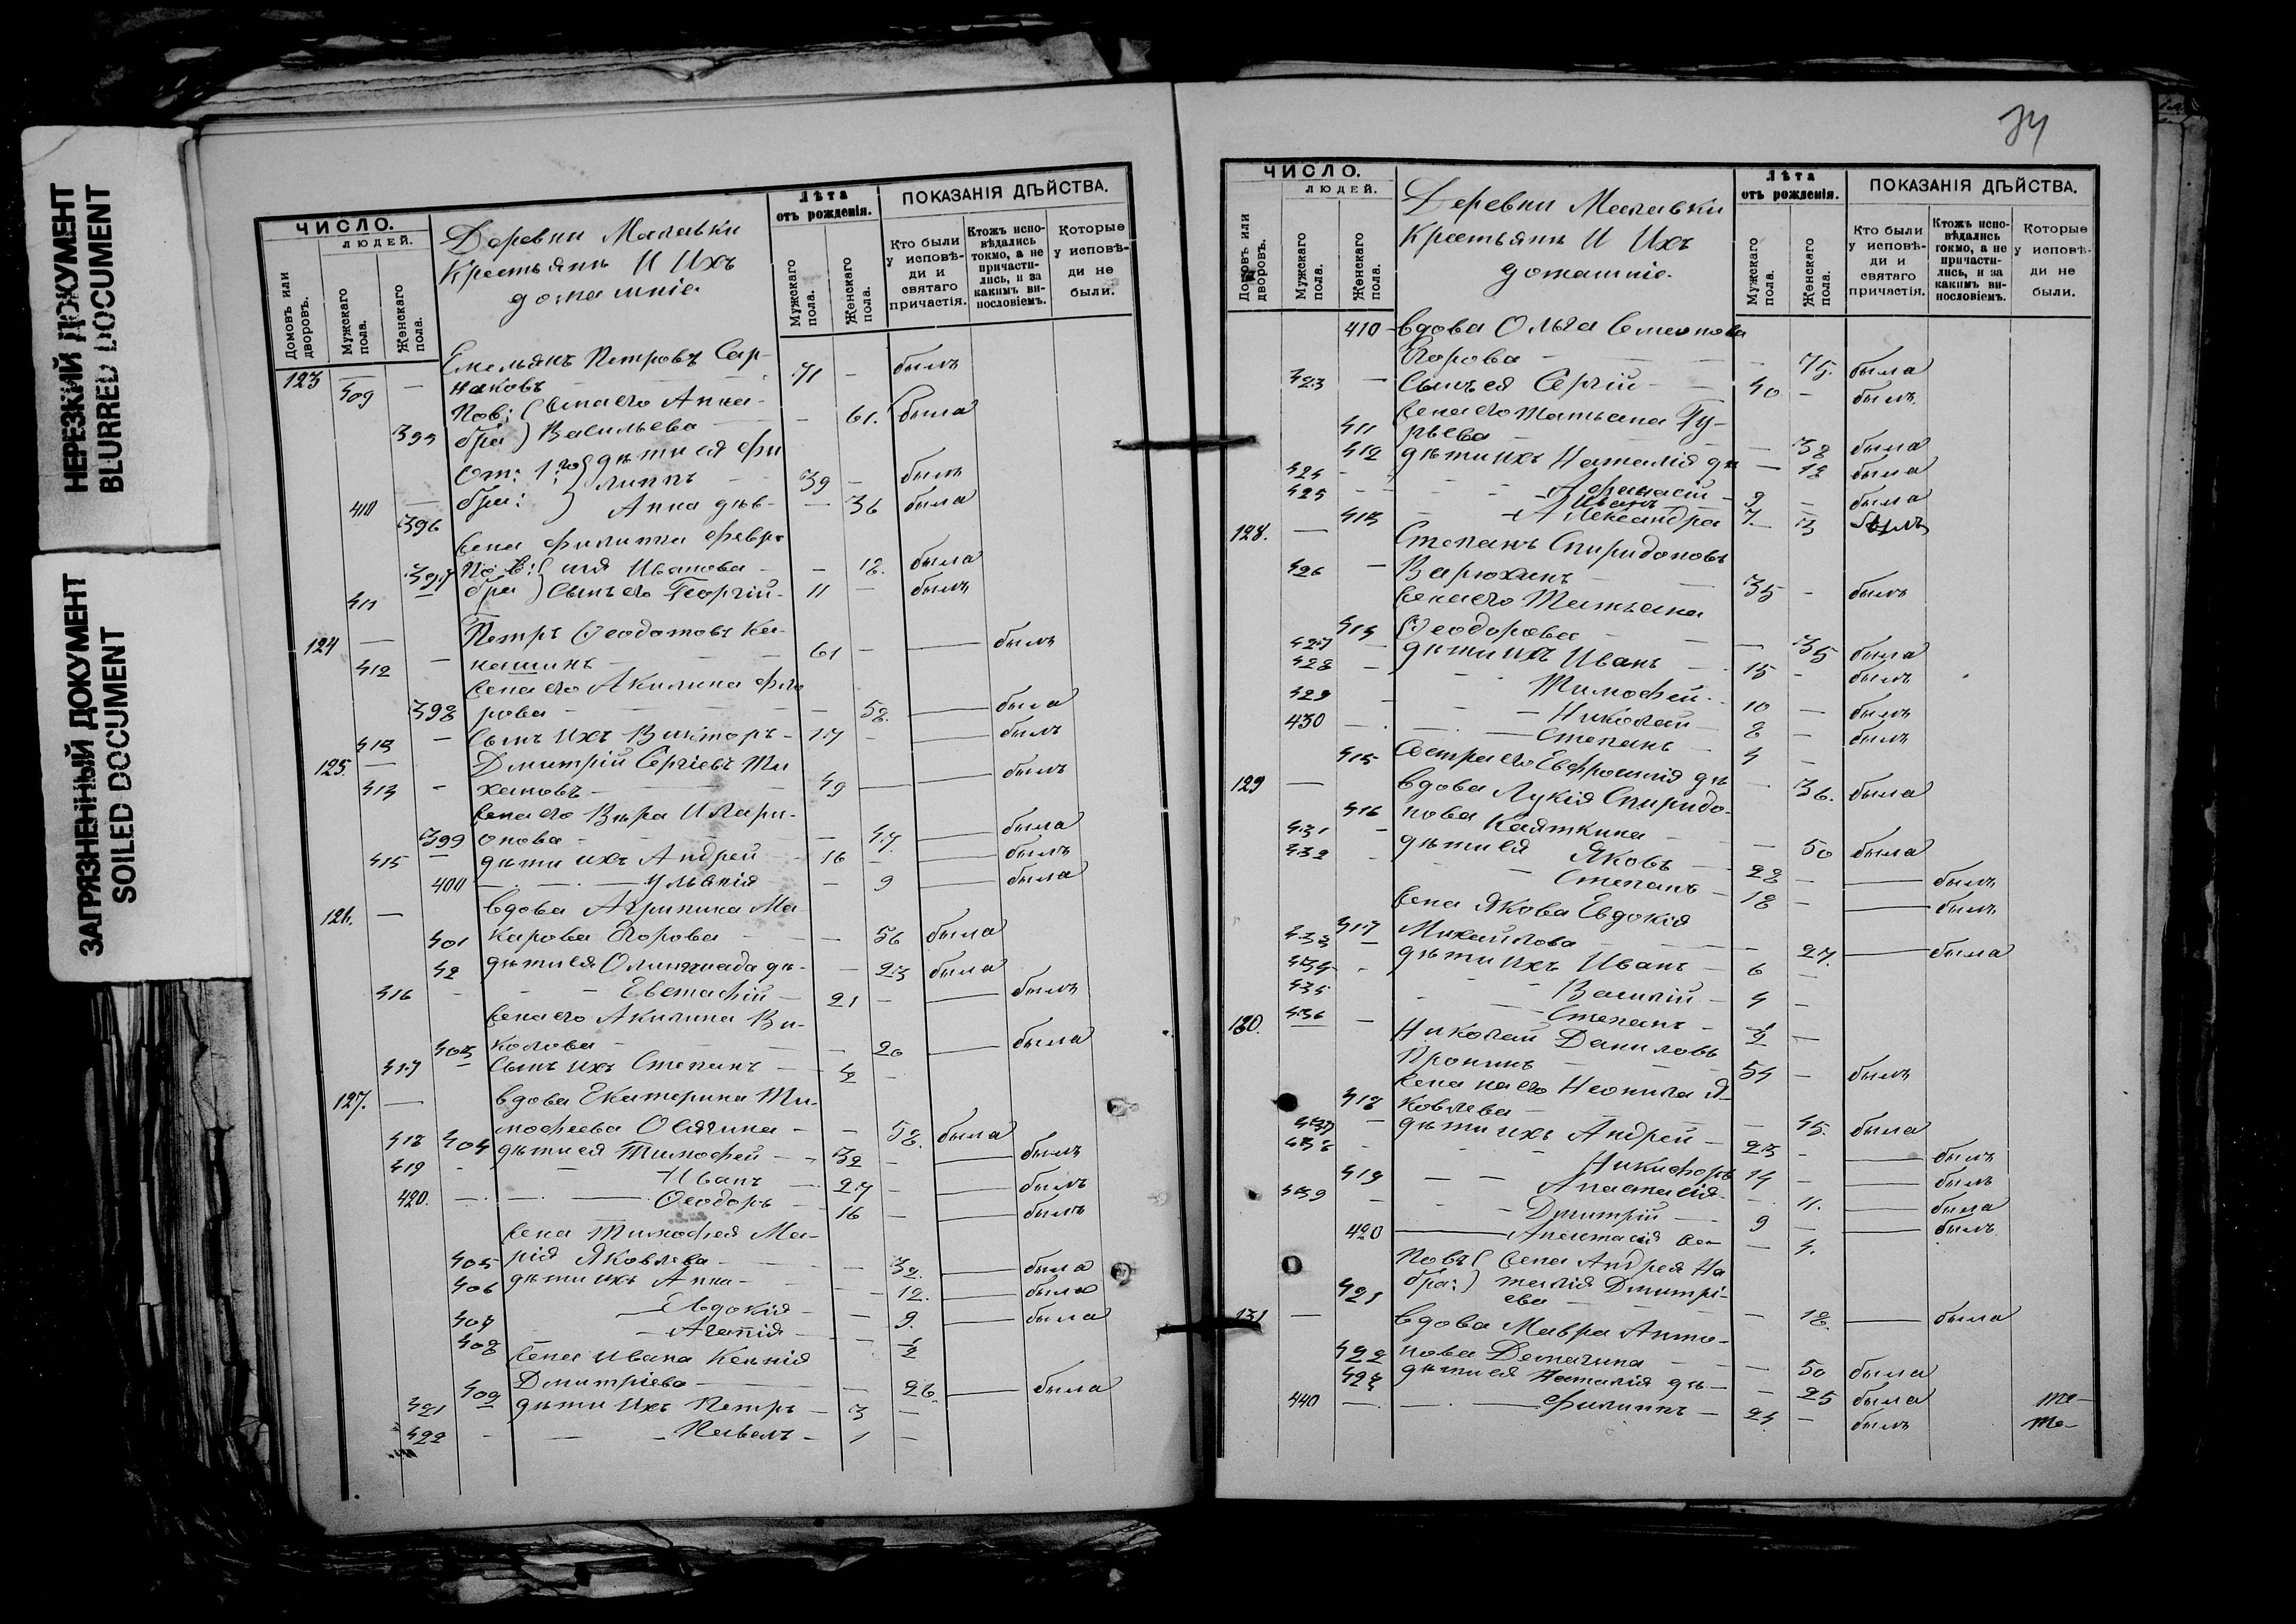 НЕРЕЗКИЙ ДОКУМЕНТ
BLURRED DOCUMENT
ЗАГРЯЗНЕННЫЙ ДОКУМЕНТ
SOILED DOCUMENT
ЧИСЛО.
ЛЮДЕЙ.
Домовъ или дворовъ.
Мужскаго пола.
Женскаго пола.
Деревни Малавки
Крестьяне И Ихъ
домашніе
Лѣта
отъ рожденія.
Мужскаго пола.
Женскаго пола.
ПОКАЗАНІЯ ДѢЙСТВА.
Кто были у исповѣди и святаго причастія.
Ктожъ исповѣдались токмо, а не причастились, и за какимъ винословіемъ.
Которые у исповѣди не были.
123 Емельянъ Петровъ Сар-
409 наковъ 71 былъ
Пов: жена его Анна
395 бра: Васильева 61. былъа
От: 1го дѣти ея Фи
410 бра: липпъ 39 былъ
396 Анна дѣв- 36 была
жена Филиппа Февро
397 Пов: нія Иванова 18. была
411 бра: Сынъ его Георгій 11 былъ
124 Петръ Ѳеодотовъ Ка-
412 нашинъ 61 былъ
жена его Акилина Фло
398 рова 58. была
413 Сынъ ихъ Викторъ 17 былъ
125. Дмитрій Сергіевъ Ти
414 хановъ 49 былъ
жена его Вѣра Илари-
399 онова 47. была
415 дѣти ихъ Андрей 16 былъ
400 Ульянія 9 была
126. вдова Агрипина Ма
401 карова Егорова 56 была
42 дѣти ея Олимпіада дѣ- 23 была
416 Евстафій 21 былъ
жена его Акилина Ви-
403 колова 20 была
417 Сынъ ихъ Степанъ ½
127. вдова Екатерина Ти-
404 мофеева Осягина 58. была
418 дѣти ея Тимофей 32 былъ
419 Иванъ 27 былъ
420. Ѳеодоръ 16 былъ
жена Тимофея Ма-
405 рія Яковлева 32. была
406 дѣти ихъ Анна 12. была
407 Евдокія 9. была
408 Агапія ½
жена Ивана Ксенія
409 Дмитріева 26. была
421 дѣти ихъ Петръ 3
422 Павелъ 1
74
ЧИСЛО.
ЛЮДЕЙ.
Домовъ или дворовъ.
Мужскаго пола.
Женскаго пола.
Деревни Малавки
Крестьяне И Ихъ
домашніе
Лѣта
отъ рожденія.
Мужскаго пола.
Женскаго пола.
ПОКАЗАНІЯ ДѢЙСТВА.
Кто были у исповѣди и святаго причастія.
Ктожъ исповѣдались токмо, а не причастились, и за какимъ винословіемъ.
Которые у исповѣди не были.
410 вдова Ольга Семенова
Егорова 75. была
423 Сынъ ея Сергій 40 былъ.
жена его Татьяна Гу-
411 рьева 38 была
412 дѣти ихъ Наталія дѣ 18 была
424 Афанасій 9 была
425 Иванъ 7. былъ
413 Александра 3
128. Степанъ Спиридоновъ
426 Варюхинъ 35 былъ
жена его Татьяна
414 Ѳеодорова 35 была
427 дѣти ихъ Иванъ 15 былъ
428 Тимофей 10 былъ
429 Николай 8 былъ
430 Степанъ 4
415 Сестра его Евфросинія дѣ 36. была
129 вдова Лукія Спиридо-
416 нова Каяткина 50 была
431 дѣти ея Яковъ 28 былъ
432 Степанъ 18 былъ
жена Якова Евдокія
417 Михайлова 27. была
433 дѣти ихъ Иванъ 6
434 Василій 4
435 Степанъ ½
130. Николай Даниловъ
436 Пронинъ 54 былъ
жена его Неонила Я-
418 ковлева 45. была
437 дѣти ихъ Андрей 23 былъ
438 Никифоръ 14 былъ
419 Анастасія 11. была
439 Дмитрій 9 былъ
420 Анастасія 4.
Повѣ жена Андрея На
421 бра: талія Дмитрі-
ева 18. была
131 вдова Мавра Анто-
422 нова Демагина 50 была
423 дѣти ея Наталія дѣ- 25 была
440 Филиппъ 24. былъ